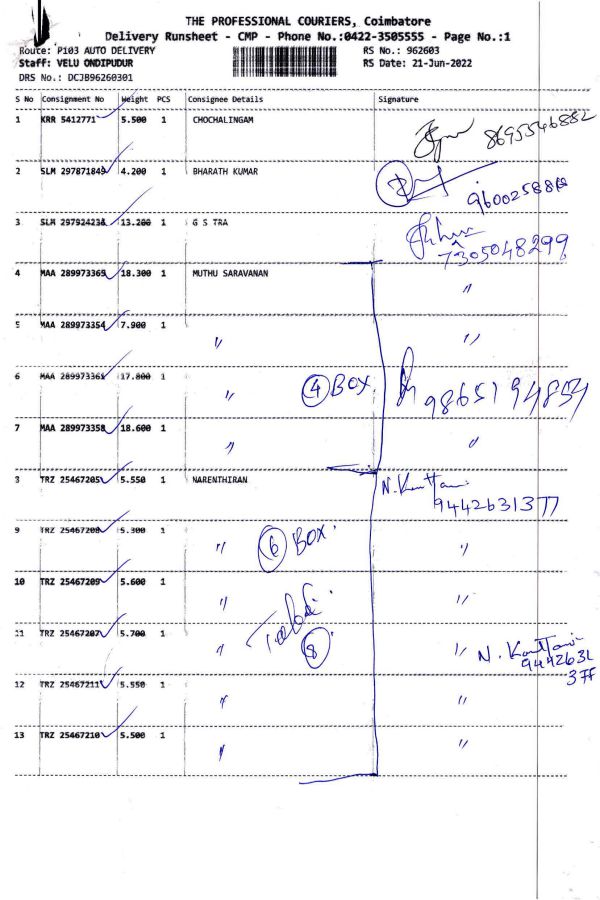 THE PROFESSIONAL COURIERS, Coimbatore
Delivery Runsheet - CMP - Phone No.:0422-3505555 - Page No.:1
Route: P103 AUTO DELIVERY RS No.: 962603
Staff: VELU ONDIPUDUR RS Date: 21-Jun-2022
DRS No.: DCJB96260301
S No Consignment No Weight PCS Consignee Details Signature
1 KRR 5412771 5.500 1 CHOCHALINGAM
8695546882
2 SLM 297871849 4.200 1 BHARATH KUMAR
3 SLM 297924236 13.200 1 G S TRA
7305048299
4 MAA 289973369 18.300 1 MUTHU SARAVANAN "
5 MAA 289973354 7.900 1 " "
6 MAA 289973361 17.800 1 " 4 BOX. 9865194854
7 MAA 289973358 18.600 1 " "
3 TRZ 25467205 5.550 1 NARENTHIRAN N.
9442631377
9 TRZ 25467208 5.300 1 " 6 BOX. "
10 TRZ 25467209 5.600 1 " "
11 TRZ 25467207 5.700 1 " 8 " N.
9442631
377
12 TRZ 25467211 5.550 1 " "
13 TRZ 25467210 5.500 1 " "